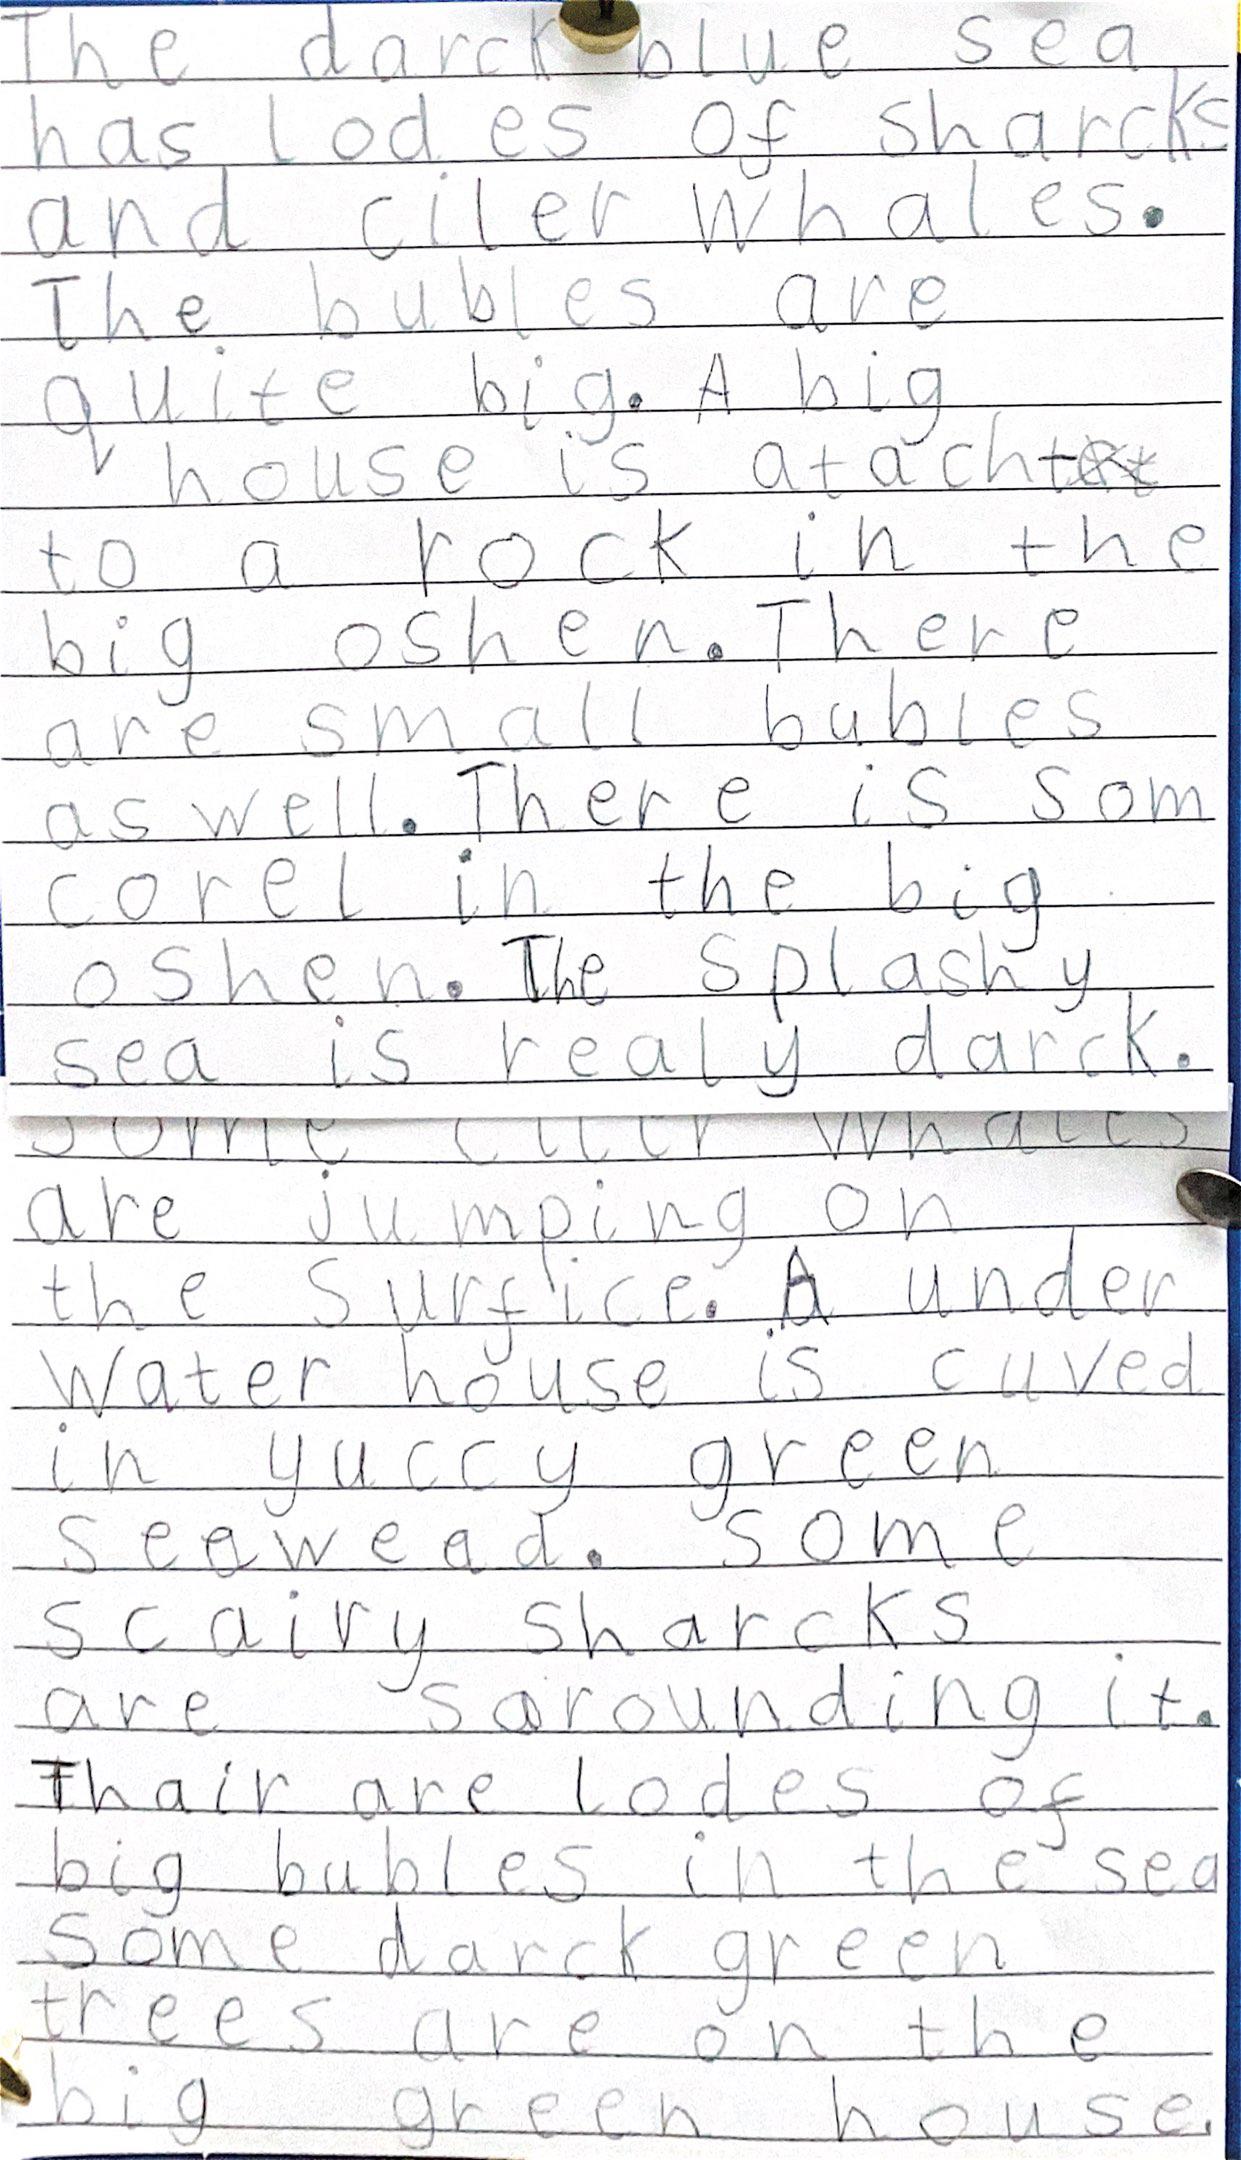 The darck blue sea
has lodes of sharcks
and ciler whales.
The bubles are
quite big. A big
house is atacht
to a rock in the
big oshen. There
are small bubles
as well. There is som
corel in the big
oshen. The splashy
sea is realy darck.
some ciler whales
are jumping on
the surfice. A under
water house is cuved
in yuccy green
seawead. some
scairy sharcks
are sarounding it.
Thair are lodes of
big bubles in the sea
some darck green
trees are on the
big green house.